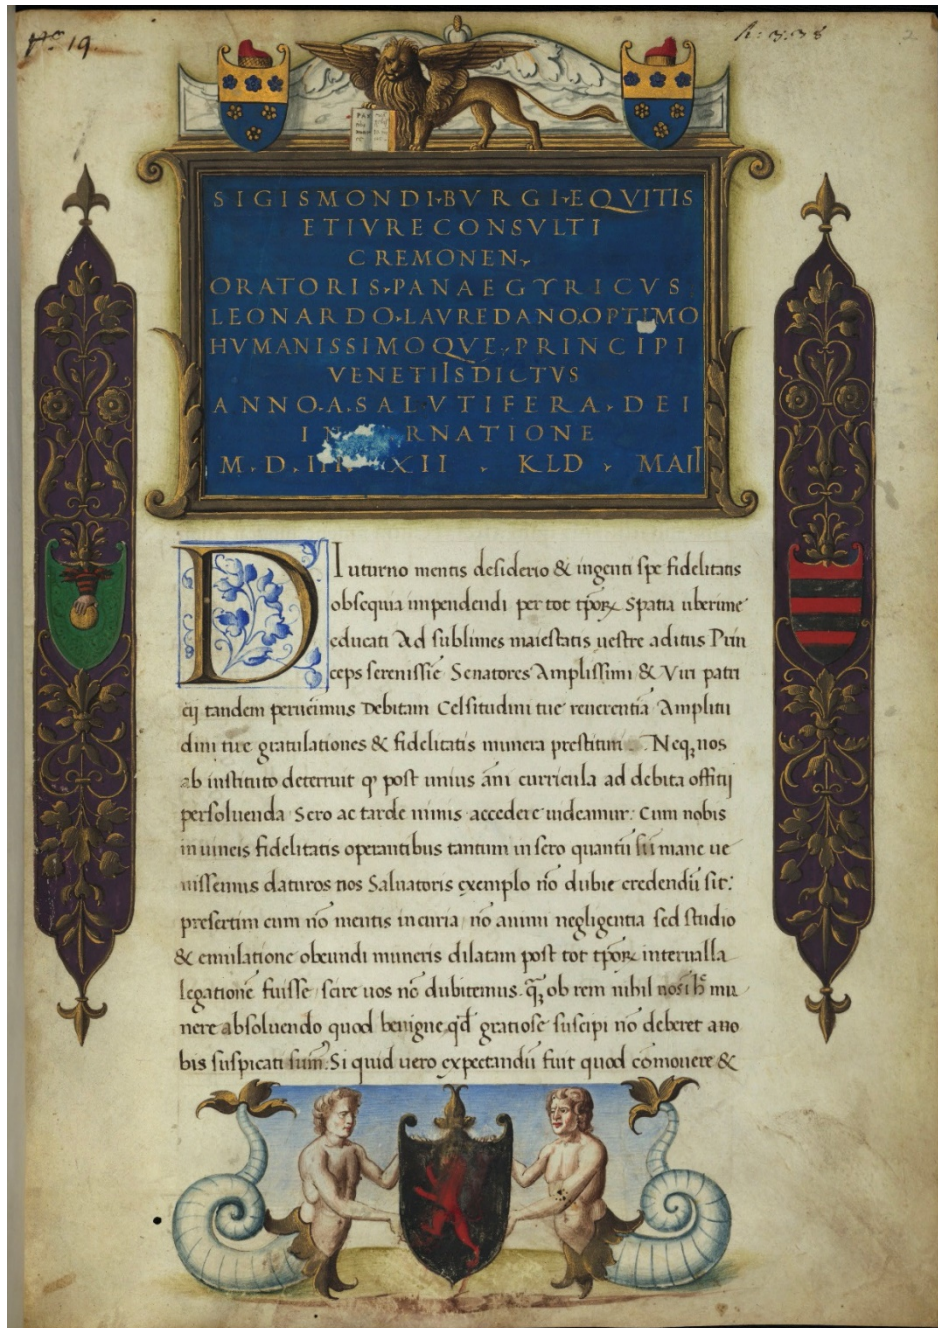 Nº 19.
SIGISMONDI BVRGI EQVITIS
ET IVRECONSVLTI
CREMONEN
ORATORIS PANAEGYRICVS
LEONARDO LAVREDANO OPTIMO
HVMANISSIMOQVE PRINCIPI
VENETIIS DICTVS
ANNO A SALVTIFERA DEI
RNATIONE
M D III XII KLD MAII
DIuturno mentis desiderio & ingenti spe fidelitatis
obsequia impendendi per tot tp̄oꝝ spatia uberime
educati Ad sublimes maiestatis uestre aditus Prin
ceps serenissie Senatores Amplissimi & Viri patri
cij tandem peruēimus Debitam Celsitudini tue reuerentiā Amplitu
dini tue gratulationes & fidelitatis munera prestituri. Neqꝫ nos
ab instituto deterruit qꝫ post unius ãni curricula ad debita offitij
persoluenda Sero ac tarde nimis accedere uideamur. Cum nobis
in uineis fidelitatis operantibus tantum in sero quantū si mane ue
nissemus daturos nos Saluatoris exemplo nō dubie credendū sit:
presertim cum nō mentis incuria nō animi negligentia sed studio
& emulatione obeundi muneris dilatam post tot tp̄oꝝ interualla
legationē fuisse scire uos nō dubitemus. ob rem nihil mu
nere absoluendo quod benigne qd gratiose suscipi nō deberet a no
bis suspicati sum̄. Si quid uero expectandū fuit quod cōmouere &